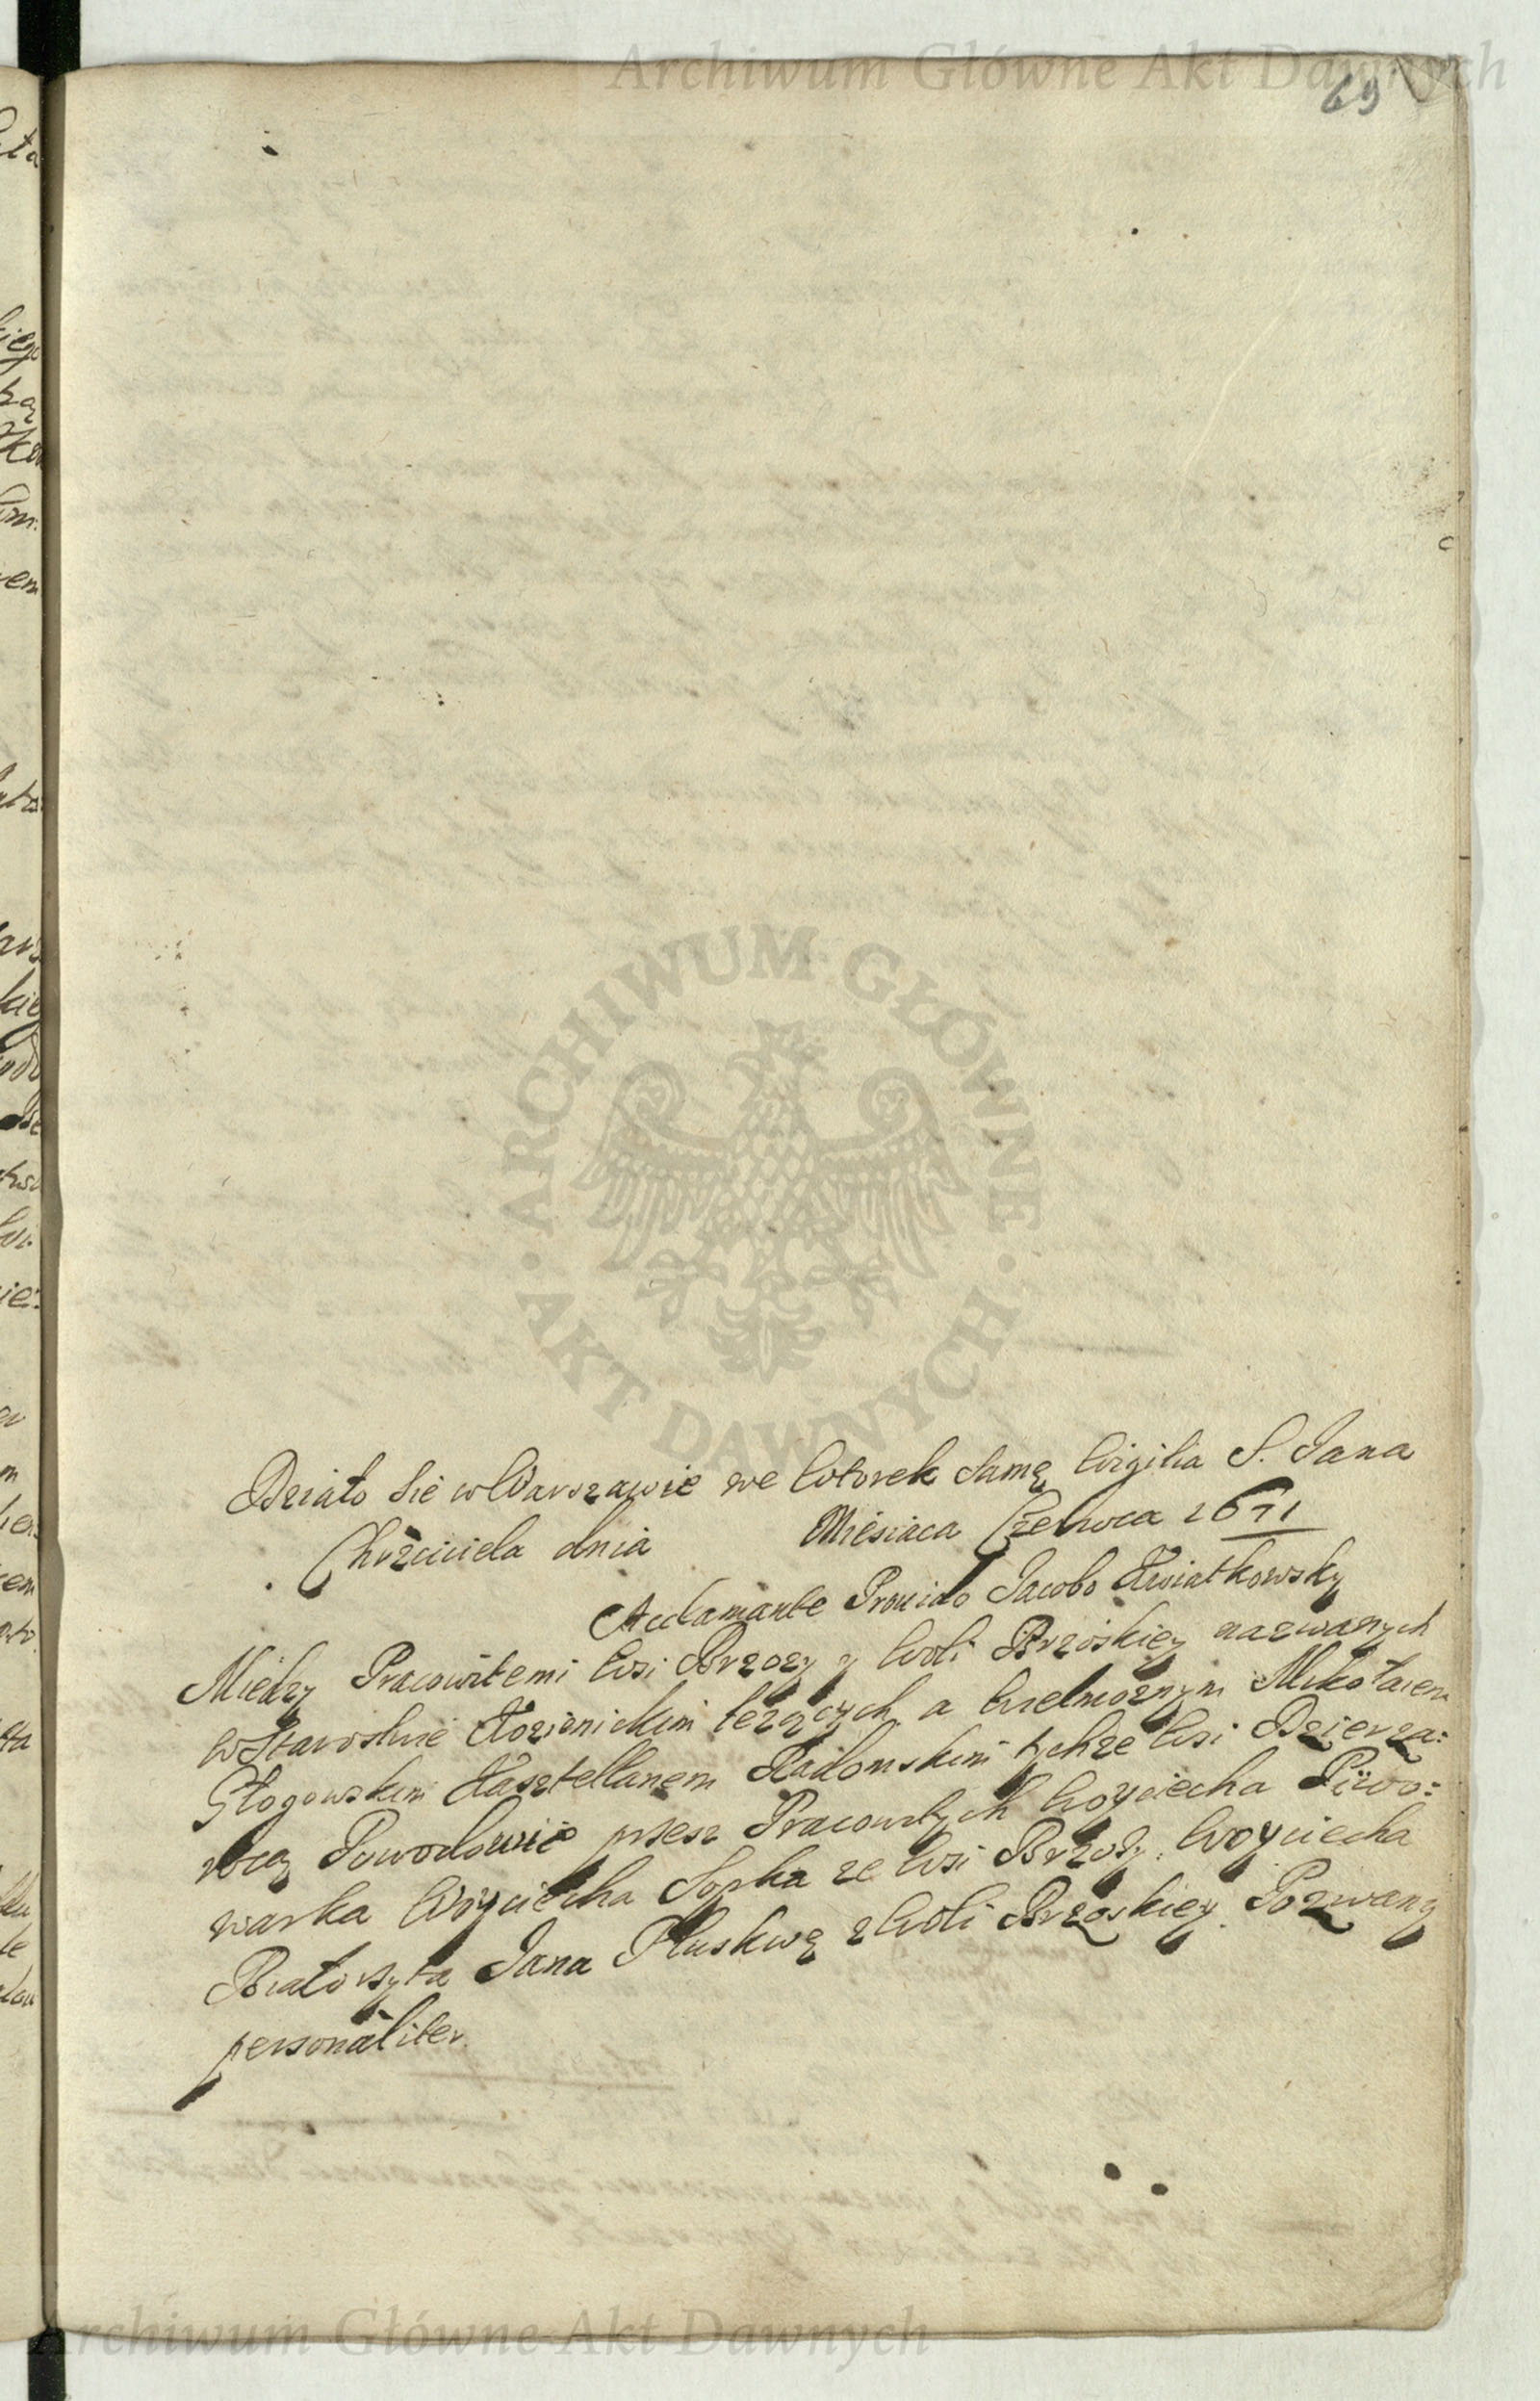 Archiwum Główne Akt Dawnych
69
Działo się w Warszawie we Wtorek samą Wigilia S. Jana
Chrzciciela dnia Miesiąca Czerwca 1671
Acclamante Prouido Jacobo Kwiatkowsky
Miedzy Pracowitemi Wsi Brzozy y Woli Brzoskiey nazwanych
w Starostwie Kozienickim leżących a Wielmożnym Mikołaiem
Głogowskim Kasztellanem Radomskim tychże Wsi Dzierża:
wcą Powodowie przesz Pracowitych Woyciecha Piwo:
warka Woyciecha Sopka ze Wsi Brzozy, Woyciecha
Białorzyta Jana Pluskwę z Woli Brzoskiey Pozwany
personaliter.
ARCHIWUM GŁÓWNE · AKT DAWNYCH ·
Archiwum Główne Akt Dawnych